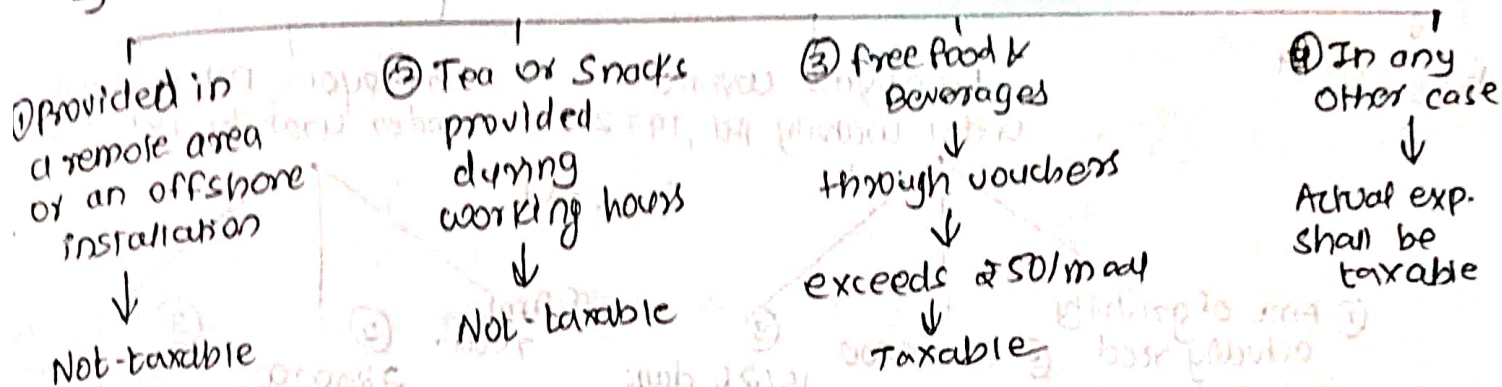 ① Provided in
a remote area
or an offshore
installation
↓
Not-taxable
② Tea or Snacks
provided
during
working hours
↓
Not-taxable
③ free food &
Beverages
↓
through vouchers
↓
exceeds ₹50/meal
↓
Taxable
④ In any
Other case
↓
Actual exp.
shall be
taxable